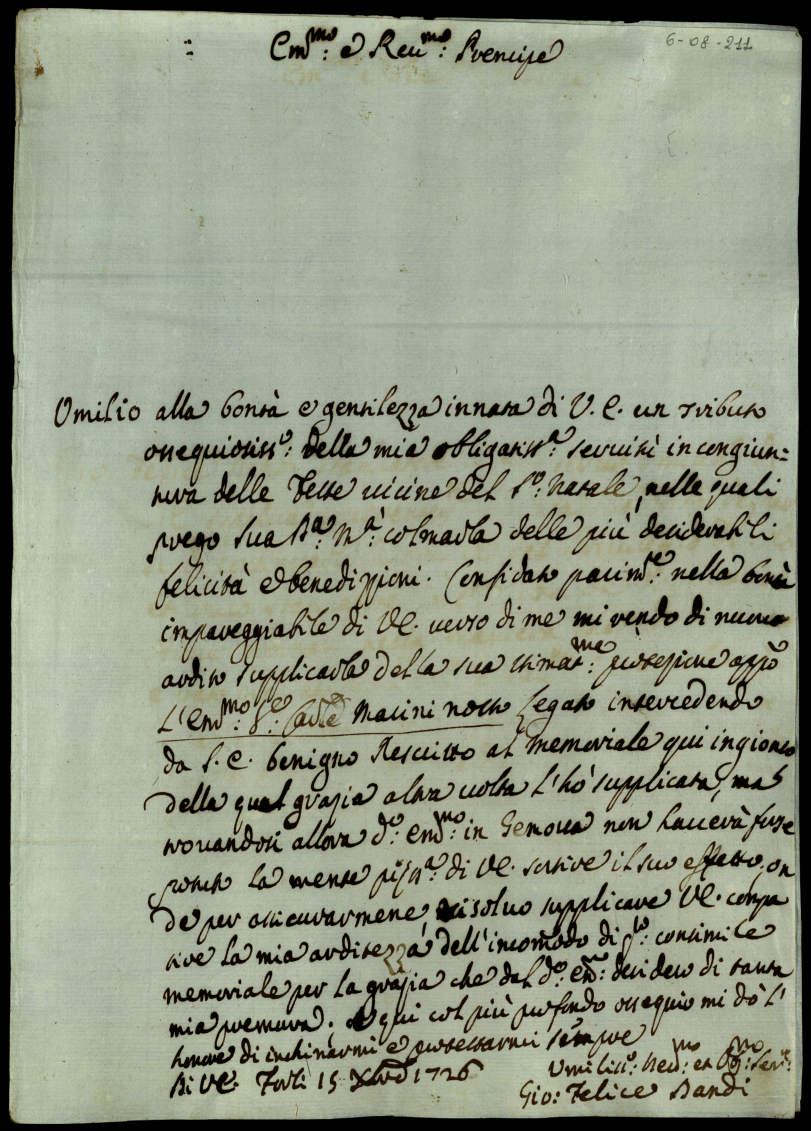 6-08-211
Em.mo: e Reu.mo: Prencipe
Umilio alla bontà e gentilezza innata di V. E. un tributo
ossequiosiss:o della mia obligatiss:a seruitù in congiun=
tura delle Feste uicine del S:o Natale, nelle quali
prego Sua B:a N:a colmarla delle più desiderabili
felicità e benedizzioni. Confidato parim:e nella bontà
impareggiabile di VE. uerso di me mi rendo di nuouo
ardito supplicarla della sua stimat:me protezione app:o
L'em:mo S:e Card:le Marini nostro Legato intercedendo
da S. E. benigno Rescritto al memoriale qui ingionto
della qual grazia altra uolta l'hò supplicata, ma
trouandosi allora d:o em:mo in Genoua non hauerà forse
potuto la mente di VE. sortire il suo effetto, on
de per assicurarmene risoluo supplicare VE. compa
tire la mia arditezza dell'incomodo di q:to consimile
memoriale per la grazia che dal d:o em: desidero di tanta
mia premura. e qui col più profondo ossequio mi dò l'
honore di inchinarmi e protestarmi sempre
Di VE. Forlì 15 Xbre 1726
Umiliss:o Deu:mo et Obl:mo Ser:e
Gio: Felice Bandi